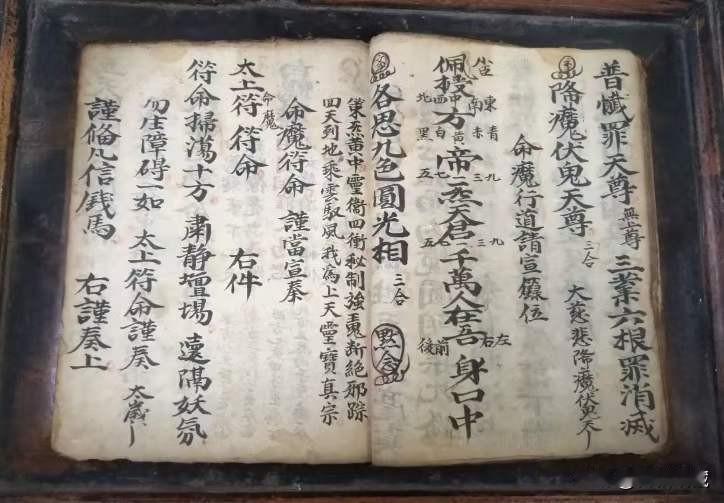 普懺罪天尊 無上尊 三業六根罪消滅
降魔伏鬼天尊 三合 大慈悲降魔伏鬼天
命魔行道請宣籙位
東南中西北
青赤黃白黑
九三一七五
方帝炁天君千萬人在吾身口中
九三一七五
左右前後
各思九色圓光相 三合 默念
第五黃中靈衛四衝秘制強鬼断絕邪踪
四天到地乘雲馭風我為上天靈寶真宗
命魔符命 謹當宣奏
太上命魔符命 右件
符命掃蕩十方 肅静壇場 遠隔妖氛
勿生障碍一如 太上符命謹奏 太歲
謹備凡信錢馬 右謹奏上